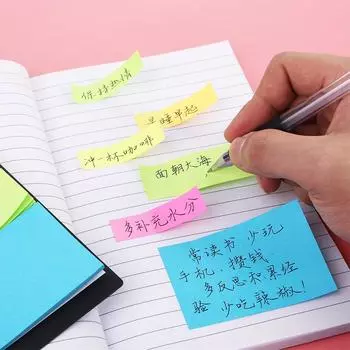 保持热情
早睡早起
冲一杯咖啡
面朝大海
多补充水分
常读书 少玩
手机、攒钱
多反思和累经
验 少吃辣椒!